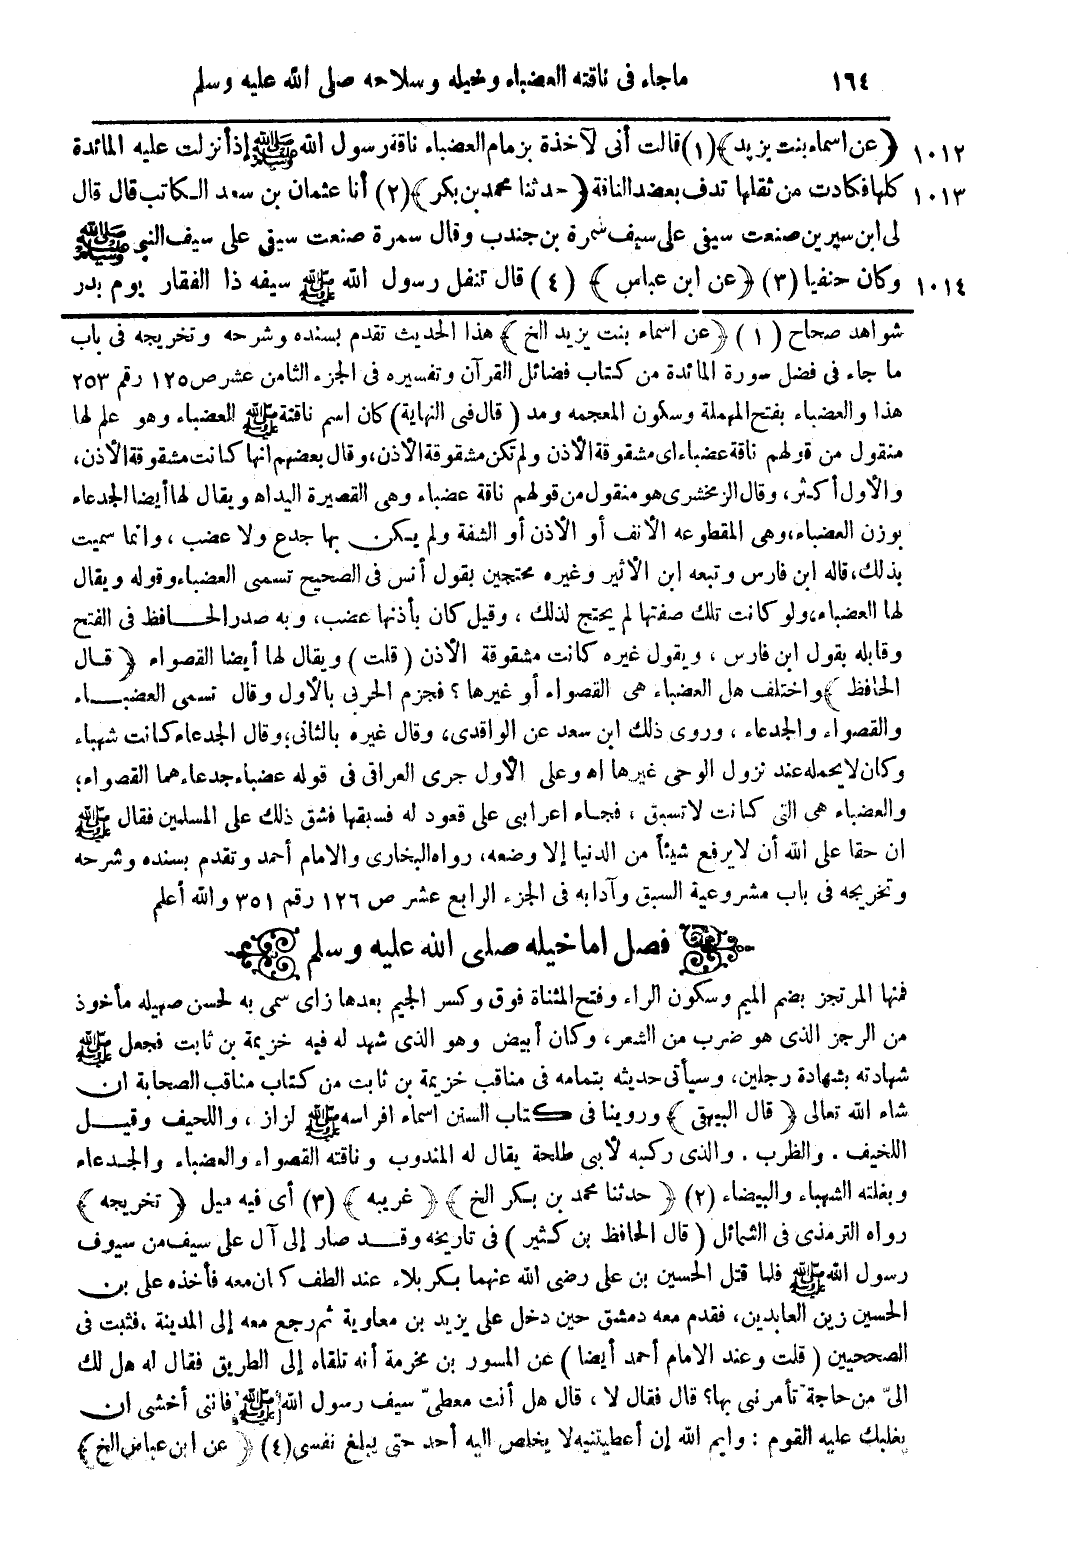 ١٦٤ ماجاء فى ناقته العضباء وخيله وسلاحه صلى الله عليه وسلم
١٠١٢ (عن اسماء بنت يزيد)(١) قالت أنى لآخذة بزمام العضباء ناقة رسول الله ﷺ إذ أنزلت عليه المائدة
١٠١٣ كلها فكادت من ثقلها تدف بعضد الناقة (حدثنا محمد بن بكر)(٢) أنا عثمان بن سعد الكاتب قال قال
لى ابن سيرين صنعت سيفى على سيف سمرة بن جندب وقال سمرة صنعت سيفى على سيف النبى ﷺ
١٠١٤ وكان حنفيا (٣) (عن ابن عباس) (٤) قال تنفل رسول الله ﷺ سيفه ذا الفقار يوم بدر
شواهد صحاح (١) (عن اسماء بنت يزيد الخ) هذا الحديث تقدم بسنده وشرحه وتخريجه فى باب
ما جاء فى فضل سورة المائدة من كتاب فضائل القرآن وتفسيره فى الجزء الثامن عشر ص ١٢٥ رقم ٢٥٣
هذا والعضباء بفتح المهملة وسكون المعجمه ومد (قال فى النهاية) كان اسم ناقتة ﷺ العضباء وهو علم لها
منقول من قولهم ناقة عضباء اى مشقوقة الأذن ولم تكن مشقوقة الأذن، وقال بعضهم انها كانت مشقوقة الأذن،
والأول أكثر، وقال الزمخشرى هو منقول من قولهم ناقة عضباء وهى القصيرة اليد اه ويقال لها أيضا الجدعاء
بوزن العضباء، وهى المقطوعه الأنف أو الأذن أو الشفة ولم يكن بها جدع ولا عضب، وانما سميت
بذلك، قاله ابن فارس وتبعه ابن الأثير وغيره محتجين بقول أنس فى الصحيح تسمى العضباء وقوله ويقال
لها العضباء، ولو كانت تلك صفتها لم يحتج لذلك، وقيل كان بأذنها عضب، وبه صدر الحافظ فى الفتح
وقابله بقول ابن فارس، وبقول غيره كانت مشقوقة الأذن (قلت) ويقال لها أيضا القصواء (قال
الحافظ) واختلف هل العضباء هى القصواء أو غيرها؟ فجزم الحربى بالأول وقال تسمى العضباء
والقصواء والجدعاء، وروى ذلك ابن سعد عن الواقدى، وقال غيره بالثانى؛ وقال الجدعاء كانت شهباء
وكان لا يحمله عند نزول الوحى غيرها اه وعلى الأول جرى العراقى فى قوله عضباء جدعاء هما القصواء؛
والعضباء هى التى كانت لا تسبق، فجاء اعرابى على قعود له فسبقها فشق ذلك على المسلمين فقال ﷺ
ان حقا على الله أن لا يرفع شيئاً من الدنيا إلا وضعه، رواه البخارى والامام أحمد وتقدم بسنده وشرحه
وتخريجه فى باب مشروعية السبق وآدابه فى الجزء الرابع عشر ص ١٢٦ رقم ٣٥١ والله أعلم
فصل اما خيله صلى الله عليه وسلم
فمنها المرتجز بضم الميم وسكون الراء وفتح المثناة فوق وكسر الجيم بعدها زاى سمى به لحسن صهيله مأخوذ
من الرجز الذى هو ضرب من الشعر، وكان أبيض وهو الذى شهد له فيه خزيمة بن ثابت فجعل ﷺ
شهادته بشهادة رجلين، وسيأتى حديثه بتمامه فى مناقب خزيمة بن ثابت من كتاب مناقب الصحابة ان
شاء الله تعالى (قال البيهقى) وروينا فى كتاب السنن اسماء افراسه ﷺ لزاز، واللحيف وقيل
اللخيف. والظرب. والذى ركبه لأبى طلحة يقال له المندوب وناقته القصواء والعضباء والجدعاء
وبغلته الشهباء والبيضاء (٢) (حدثنا محمد بن بكر الخ) (غريبه) (٣) أى فيه ميل (تخريجه)
رواه الترمذى فى الشمائل (قال الحافظ بن كثير) فى تاريخه وقد صار إلى آل على سيف من سيوف
رسول الله ﷺ فلما قتل الحسين بن على رضى الله عنهما بكربلاء عند الطف كان معه فأخذه على بن
الحسين زين العابدين، فقدم معه دمشق حين دخل على يزيد بن معاوية ثم رجع معه إلى المدينة، فثبت فى
الصحيحين (قلت وعند الامام أحمد أيضا) عن المسور بن مخرمة أنه تلقاه إلى الطريق فقال له هل لك
الىّ من حاجة تأمرنى بها؟ قال فقال لا، قال هل أنت معطىّ سيف رسول الله ﷺ فانى أخشى ان
يغلبك عليه القوم: وايم الله إن أعطيتنيه لا يخلص اليه أحد حتى يبلغ نفسى (٤) (عن ابن عباس الخ)